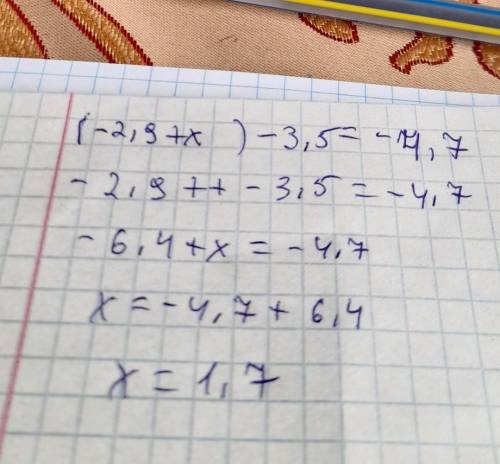 (-2,9+x) -3,5=-4,7
-2,9++-3,5=-4,7
-6,4+x=-4,7
x=-4,7+6,4
x=1,7